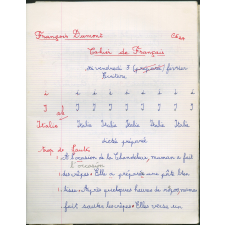 François Dumont
Cahier de Français
vendredi 3 février
Ecriture
i i i i i i i i
I I I I I I I
Italie Italie Italie Italie Italie Italie
dictée préparée
trop de fautes
A l'occasion de la Chandeleur, maman a fait
l'occasion
des crêpes. Elle a préparé une pâte bien
lisse. Après quelques heures de repos, maman
fait sauter les crêpes. Elle verse un